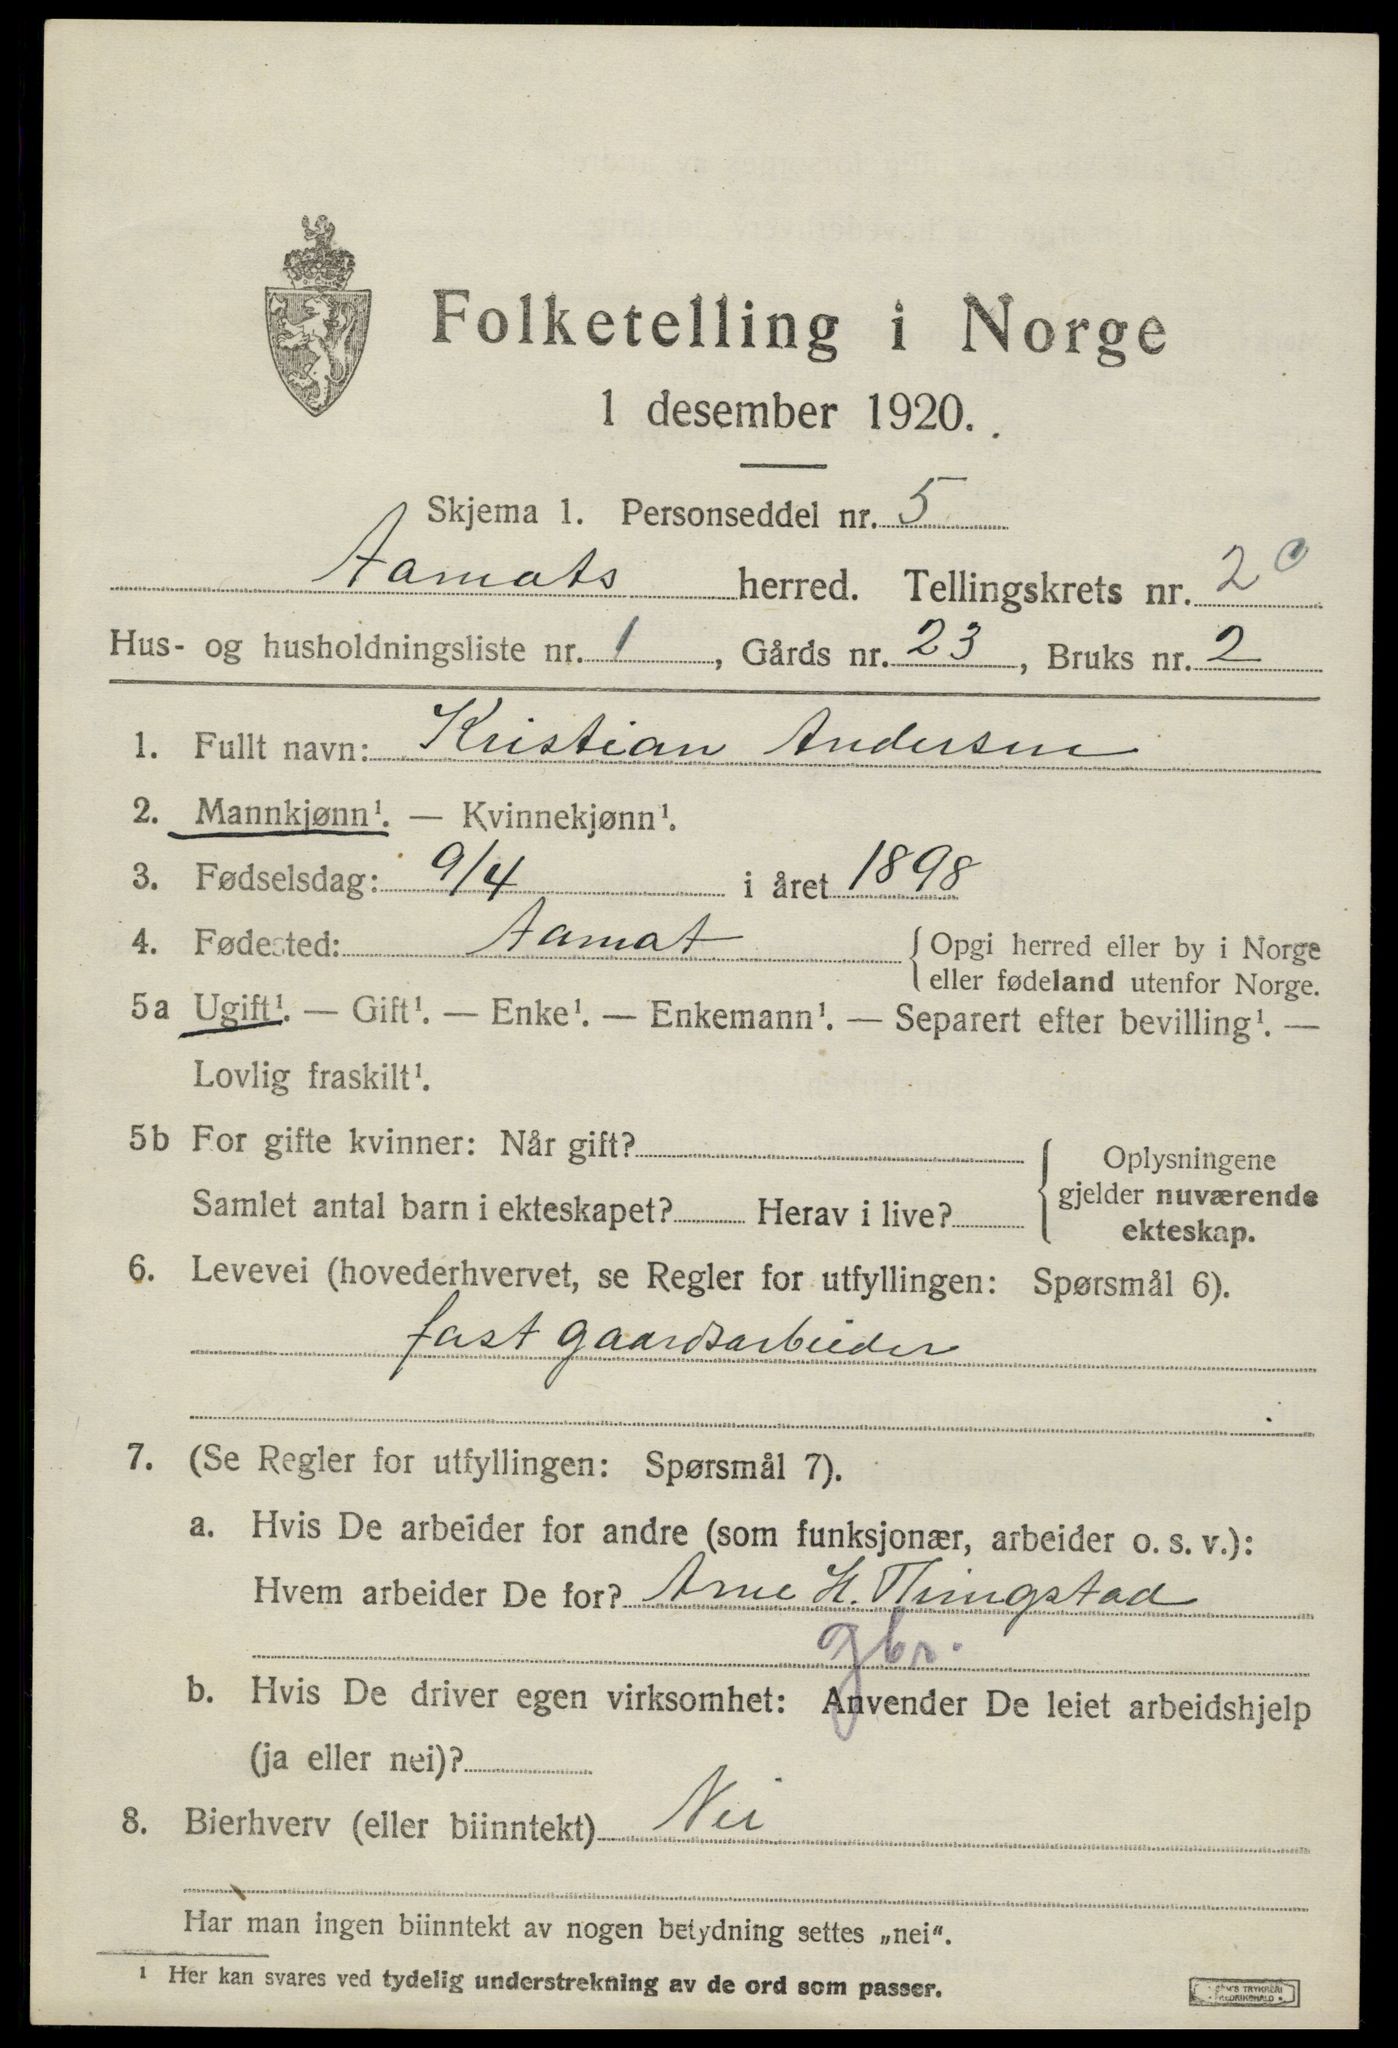 Folketelling i Norge
1 desember 1920.
Skjema 1. Personseddel nr. 5
Aamots herred. Tellingskrets nr. 2 c
Hus- og husholdningsliste nr. 1, Gårds nr. 23, Bruks nr. 2
1. Fullt navn: Kristian Andersen
2. Mannkjønn¹. — Kvinnekjønn¹.
3. Fødselsdag: 9/4 i året 1898
4. Fødested: Aamot { Opgi herred eller by i Norge
eller fødeland utenfor Norge.
5a Ugift¹. — Gift¹. — Enke¹. — Enkemann¹. — Separert efter bevilling¹. —
Lovlig fraskilt¹.
5b For gifte kvinner: Når gift?
Samlet antal barn i ekteskapet? Herav i live?
Oplysningene
gjelder nuværende
ekteskap.
6. Levevei (hovederhvervet, se Regler for utfyllingen: Spørsmål 6).
fast gaardsarbeider
7. (Se Regler for utfyllingen: Spørsmål 7).
a. Hvis De arbeider for andre (som funksjonær, arbeider o. s. v.):
Hvem arbeider De for? Arne H. Thingstad
gbr.
b. Hvis De driver egen virksomhet: Anvender De leiet arbeidshjelp
(ja eller nei)?
8. Bierhverv (eller biinntekt) Nei
Har man ingen biinntekt av nogen betydning settes „nei“.
¹ Her kan svares ved tydelig understrekning av de ord som passer.
TRYKKERI
FREDRIKSHALD